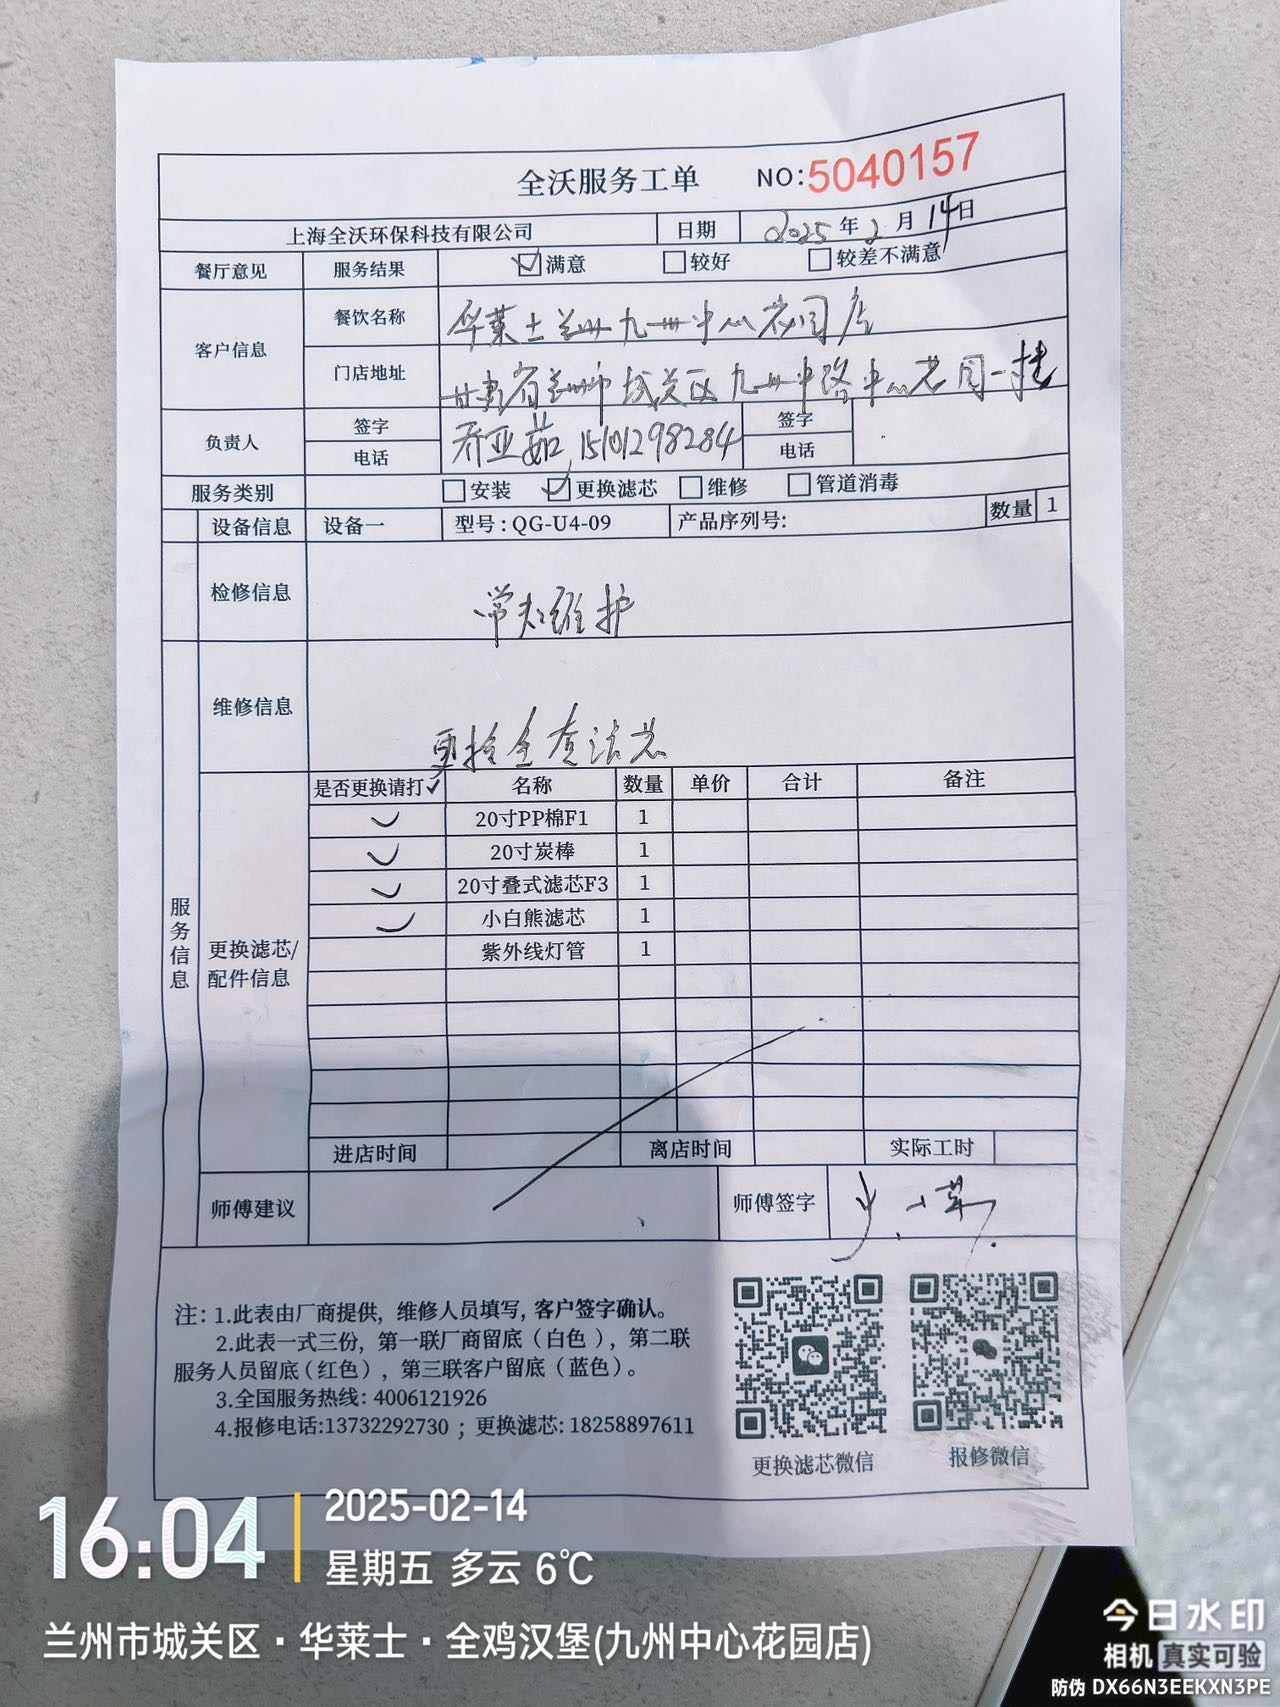 全沃服务工单 NO:5040157
上海全沃环保科技有限公司 日期 2025年2月14日
餐厅意见 服务结果 ☑满意 □较好 □较差不满意
客户信息 餐饮名称 华莱士兰州九州中心花园店
门店地址 甘肃省兰州市城关区九州中路中心花园一楼
负责人 签字 电话 乔亚茹 15101298284 签字 电话
服务类别 □安装 ☑更换滤芯 □维修 □管道消毒
设备信息 设备一 型号:QG-U4-09 产品序列号: 数量 1
检修信息 常规维护
维修信息 更换全套滤芯
服务信息
更换滤芯/配件信息
是否更换请打✓ 名称 数量 单价 合计 备注
✓ 20寸PP棉F1 1
✓ 20寸炭棒 1
✓ 20寸叠式滤芯F3 1
✓ 小白熊滤芯 1
紫外线灯管 1
进店时间 离店时间 实际工时
师傅建议 师傅签字
注: 1.此表由厂商提供, 维修人员填写, 客户签字确认。
2.此表一式三份, 第一联厂商留底(白色), 第二联
服务人员留底(红色), 第三联客户留底(蓝色)。
3.全国服务热线: 4006121926
4.报修电话:13732292730 ; 更换滤芯: 18258897611
更换滤芯微信 报修微信
16:04 2025-02-14
星期五 多云 6℃
兰州市城关区·华莱士·全鸡汉堡(九州中心花园店)
今日水印
相机 真实可验
防伪 DX66N3EEKXN3PE